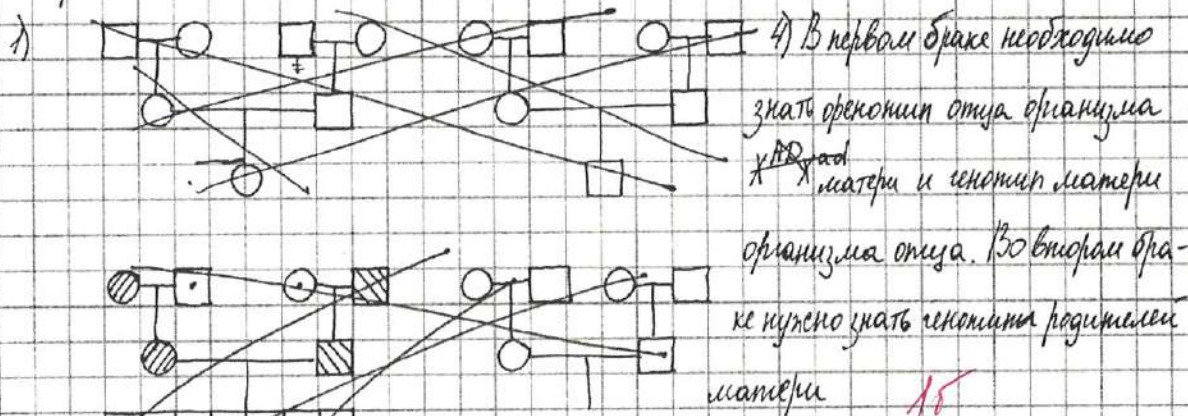 1)
4) В первом браке необходимо
знать фенотип отца организма
матери и генотип матери
организма отца. Во втором бра-
ке нужно знать генотипы родителей
матери
1б